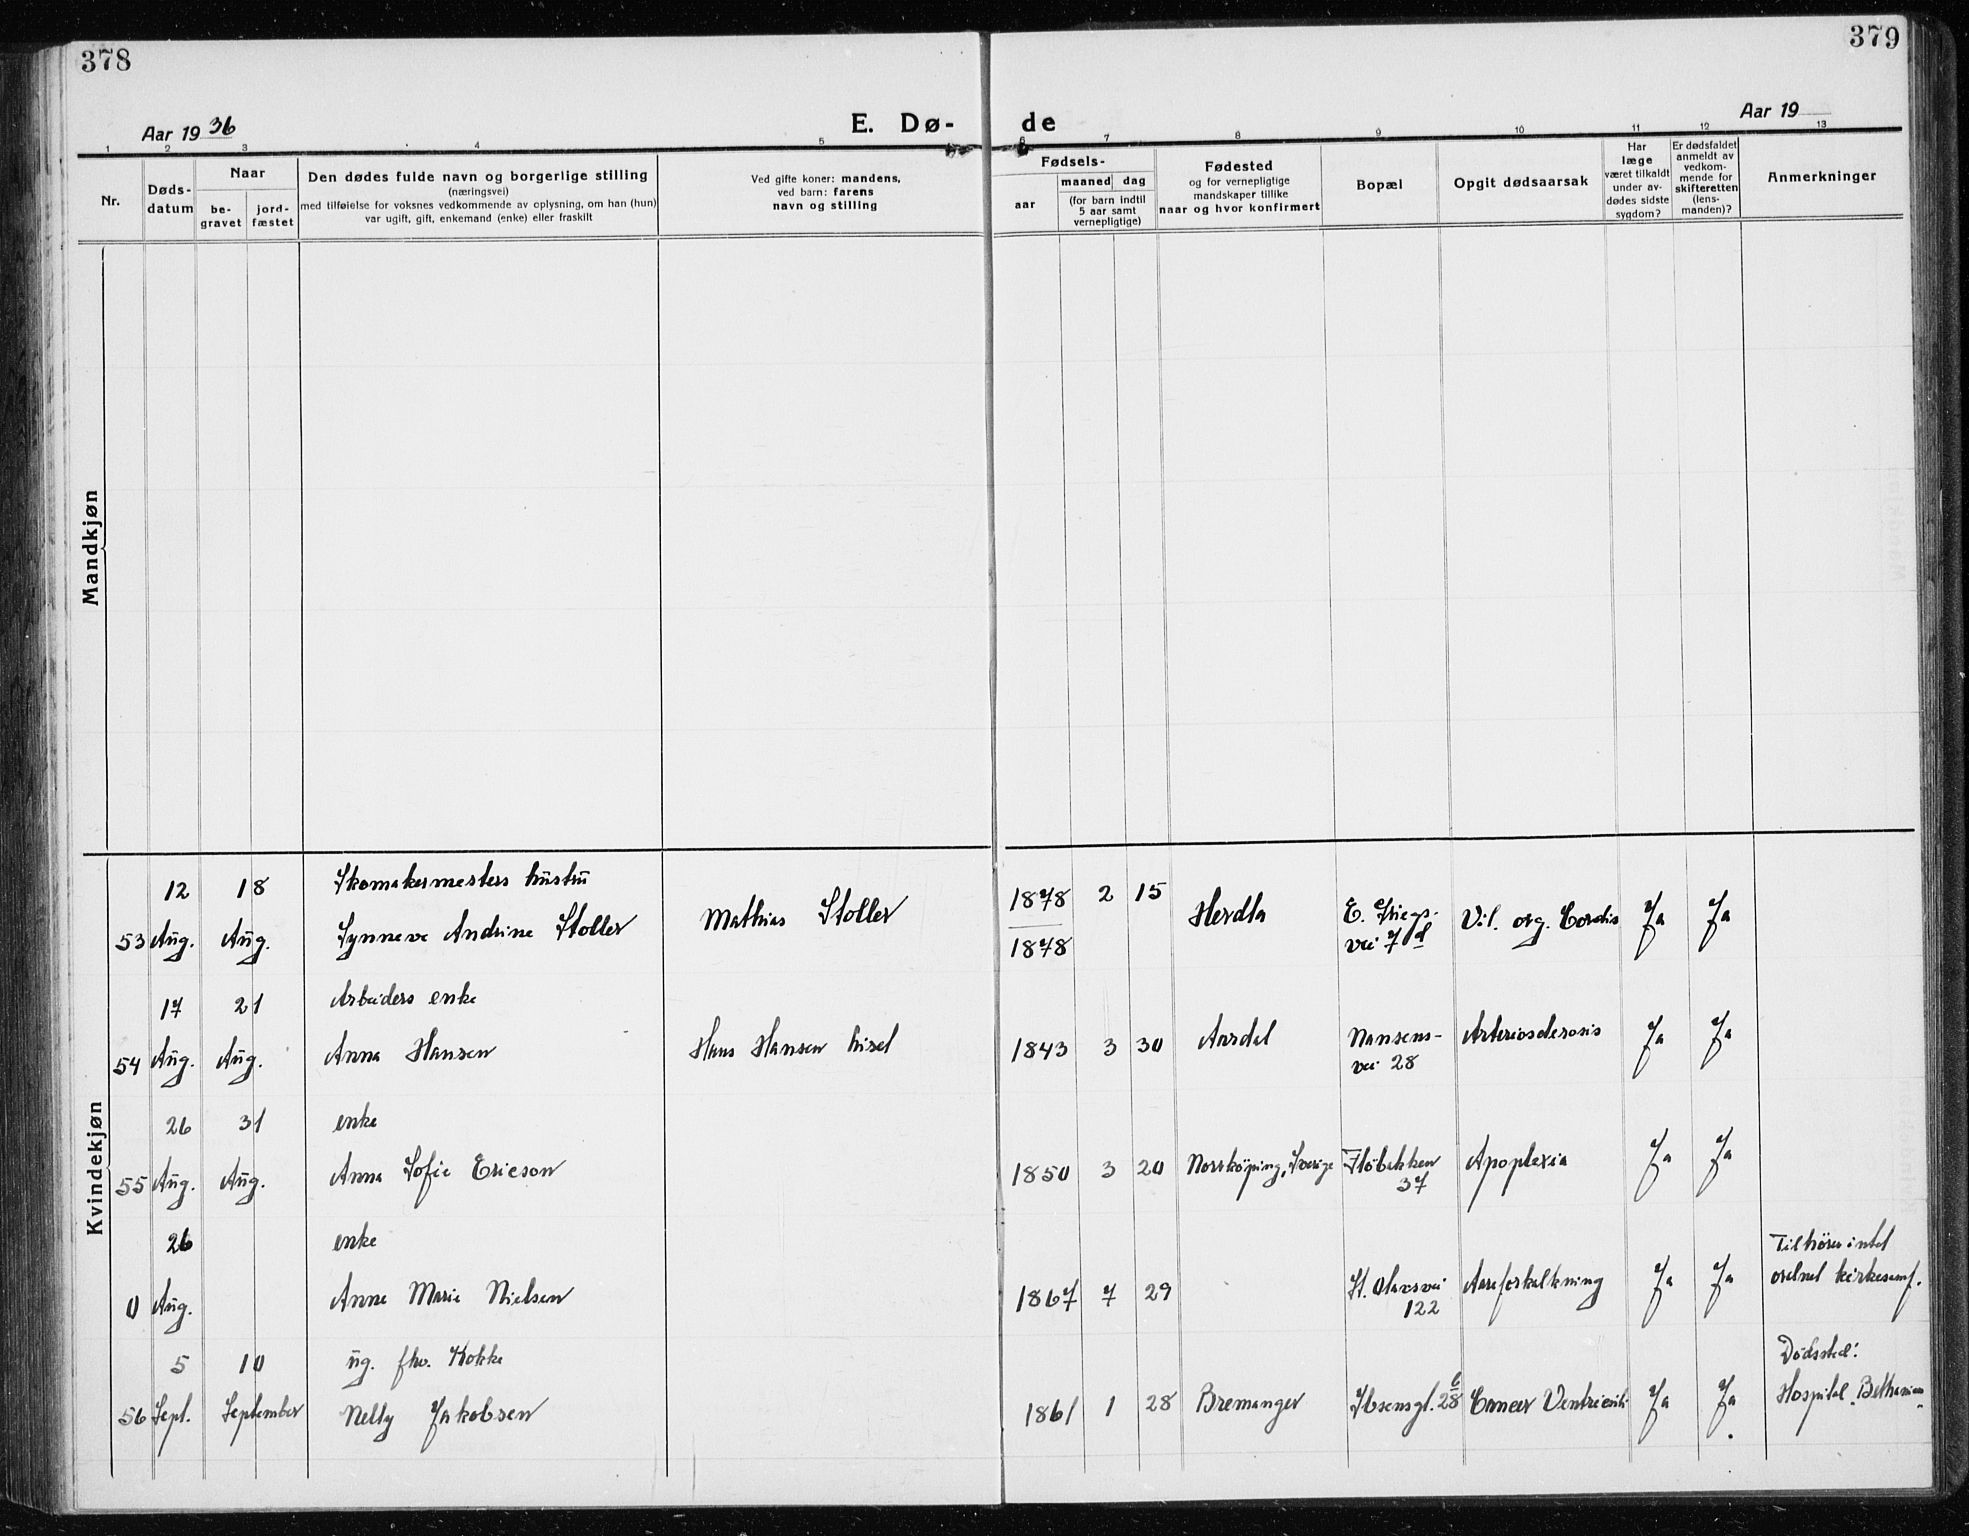 378
379
Aar 1936
E. Dø-
de
Aar 19
1 2 3 4 5 6 7 8 9 10 11 12 13
Nr.
Døds-
datum
Naar
be-
gravet
jord-
fæstet
Den dødes fulde navn og borgerlige stilling
(næringsvei)
med tilføielse for voksnes vedkommende av oplysning, om han (hun)
var ugift, gift, enkemand (enke) eller fraskilt
Ved gifte koner: mandens,
ved barn: farens
navn og stilling
Fødsels-
aar
maaned dag
(for barn indtil
5 aar samt
vernepligtige)
Fødested
og for vernepligtige
mandskaper tillike
naar og hvor konfirmert
Bopæl
Opgit dødsaarsak
Har
læge
været tilkaldt
under av-
dødes sidste
sygdom?
Er dødsfaldet
anmeldt av
vedkom-
mende for
skifteretten
(lens-
manden)?
Anmerkninger
Mandkjøn
Kvindekjøn
12 18 Skomakermesters hustru 1878 2 15
53 Aug. Aug. Synneve Andrine Stoller Mathias Stoller 1878 Herdla E. Griegs-
vei 7d Vit. org. Cordis Ja Ja
17 21 Arbeiders enke
54 Aug. Aug. Anna Hansen Hans Hansen 1843 3 30 Aardal Nansens-
vei 28 Arteriosclerosis Ja Ja
26 31 enke
55 Aug. Aug. Anna Sofie Ericson 1850 3 20 Norrköping, Sverige Fløbakken
37 Apoplexia Ja Ja
26 enke Tilhörer intet
0 Aug. Anne Marie Nielsen 1867 7 29 St. Olavsvei
122 Aareforkalkning Ja Ja ordnet kirkesamf.
5 10 ug. fhv. Kokke Dödssted:
56 Sept. September Nelly Jakobsen 1861 1 28 Bremanger Ibsensgt. 28 Cancer Ventriculi Ja Ja Hospital "Bethanien"